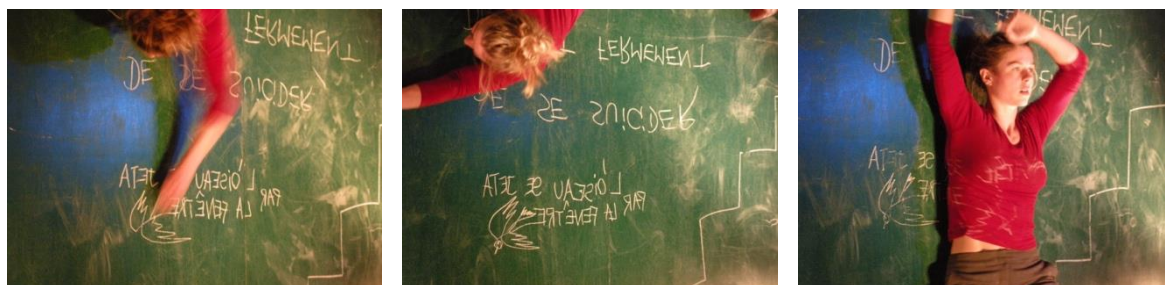 FERMEMENT
DE SE SUICIDER
L'OISEAU JETA
PAR LA FENÊTRE
FERMEMENT
DE SE SUICIDER
L'OISEAU SE JETA
PAR LA FENÊTRE
DE
SE JETA